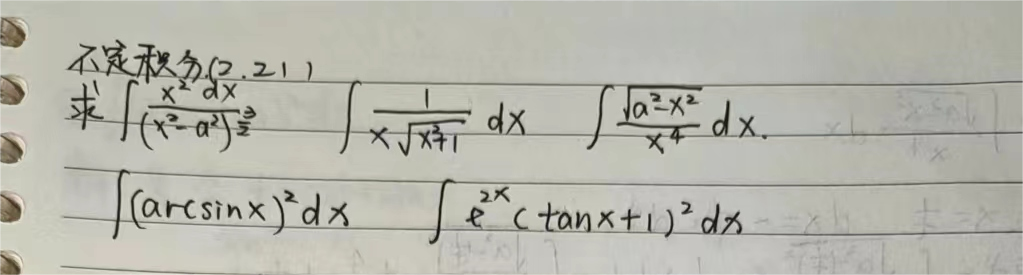 不定积分(2.21)
求 ∫ x² dx / (x² - a²)^(3/2)   ∫ 1 / (x√(x²+1)) dx   ∫ √(a²-x²) / x⁴ dx.
∫(arcsinx)² dx   ∫ e^(2x) (tanx+1)² dx